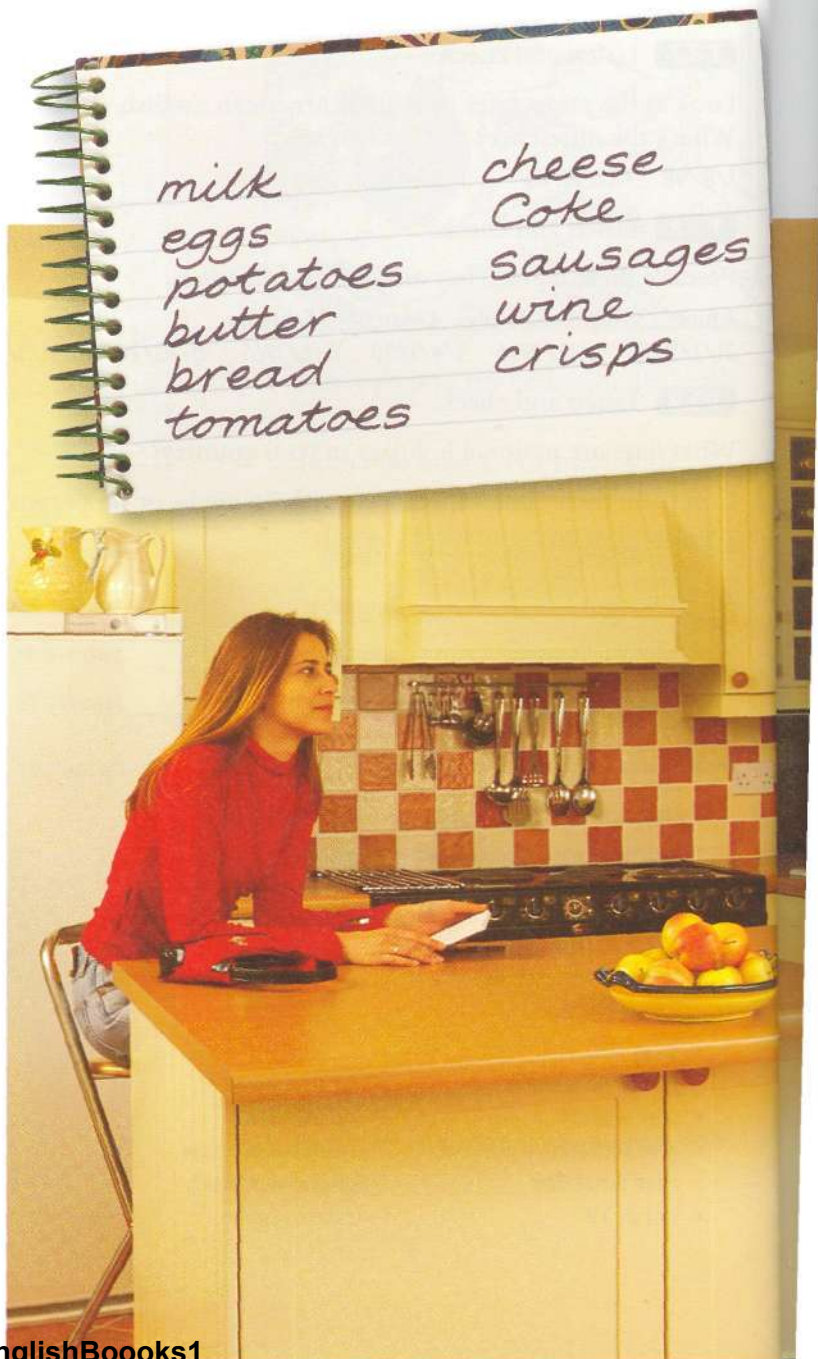 milk
eggs
potatoes
butter
bread
tomatoes
cheese
Coke
sausages
wine
crisps
nglishBoooks1